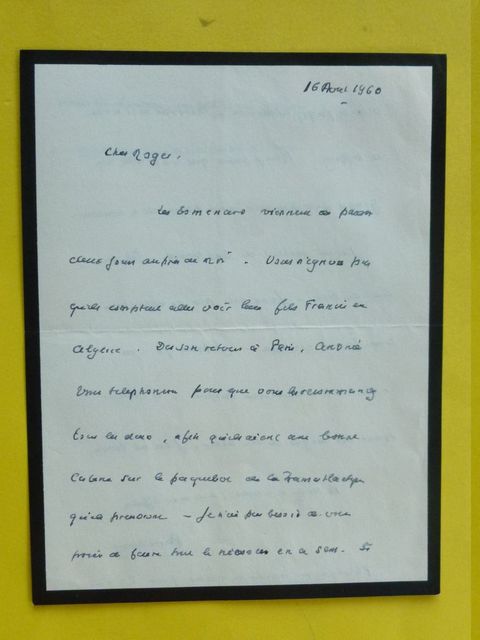 16 Avril 1960
Cher Roger,
Les Esmenard viennent de passer
deux jours auprès de moi. Vous n'ignorez pas
qu'ils comptent aller voir leur fils Francis en
Algérie. Dès son retour à Paris, André
vous téléphonera pour que vous les recommandiez
tous les deux, afin qu'ils aient une bonne
cabine sur le paquebot de la Transatlantique
qu'ils prendront – Je n'ai pas besoin de vous
prier de faire tout le nécessaire en ce sens. Si